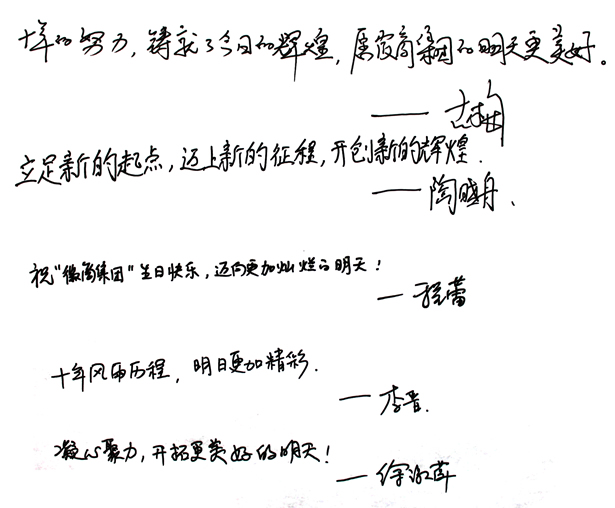 十年的努力，铸就了今日的辉煌，愿徽商集团的明天更美好。
——
立足新的起点，迈上新的征程，开创新的辉煌.
——陶晓舟.
祝"徽商集团"生日快乐，迈向更加灿烂的明天！
—程蕾
十年风雨历程，明日更加精彩.
—李晋.
凝心聚力，开拓更美好的明天！
—徐